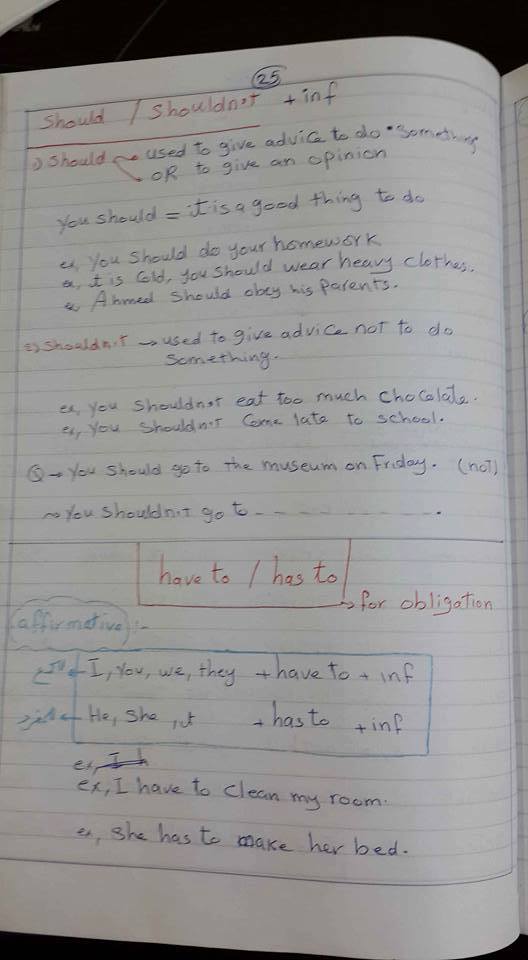 25
Should / Shouldnot + inf
1) Should used to give advice to do something
OR to give an opinion
You should = it is a good thing to do
ex, You should do your homework
ex, it is Cold, you should wear heavy clothes.
ex, Ahmed should obey his parents.
2) Shouldn't → used to give advice not to do
Something.
ex, You shouldnot eat too much Chocolate.
ex, You shouldn't Come late to school.
Q → You should go to the museum on Friday. (not)
→ You shouldn't go to - - - - - - - - - - .
have to / has to
→ for obligation
affirmative :-
الجمع ← I, You, we, they + have to + inf
المفرد ← He, She, it + has to + inf
ex,
ex, I have to clean my room.
ex, She has to make her bed.